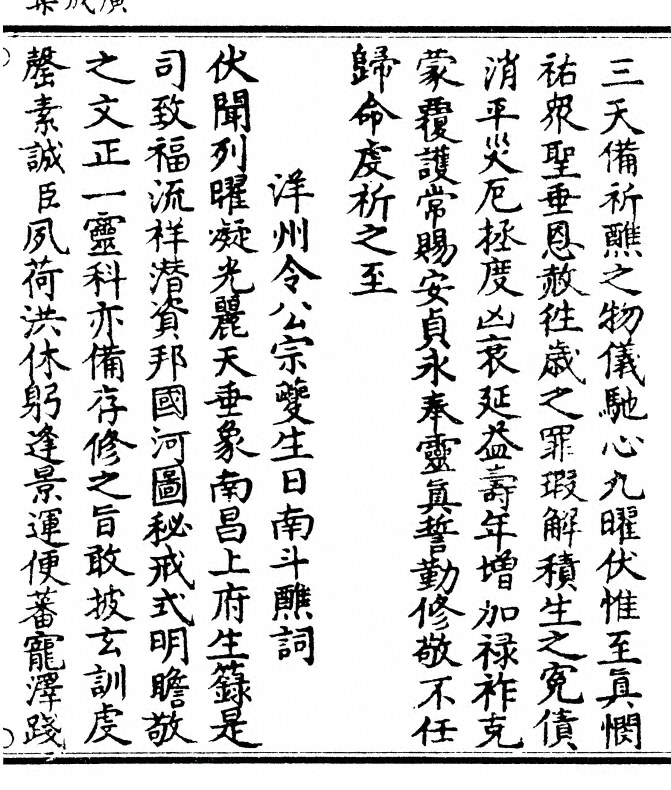 三天備祈醮之物儀馳心九曜伏惟至眞憫
祐衆聖垂恩赦徃歳之罪瑕解積生之寃債
消平災厄拯度凶衰延益壽年增加禄祚克
蒙覆護常賜安貞永奉靈眞誓勤修敬不任
歸命虔祈之至
洋州令公宗夔生日南斗醮詞
伏聞列曜凝光麗天垂象南昌上府生籙是
司致福流祥潜資邦國河圖秘戒式明瞻敬
之文正一靈科亦備存修之旨敢披玄訓虔
罄素誠臣夙荷洪休躬逢景運便蕃寵澤踐